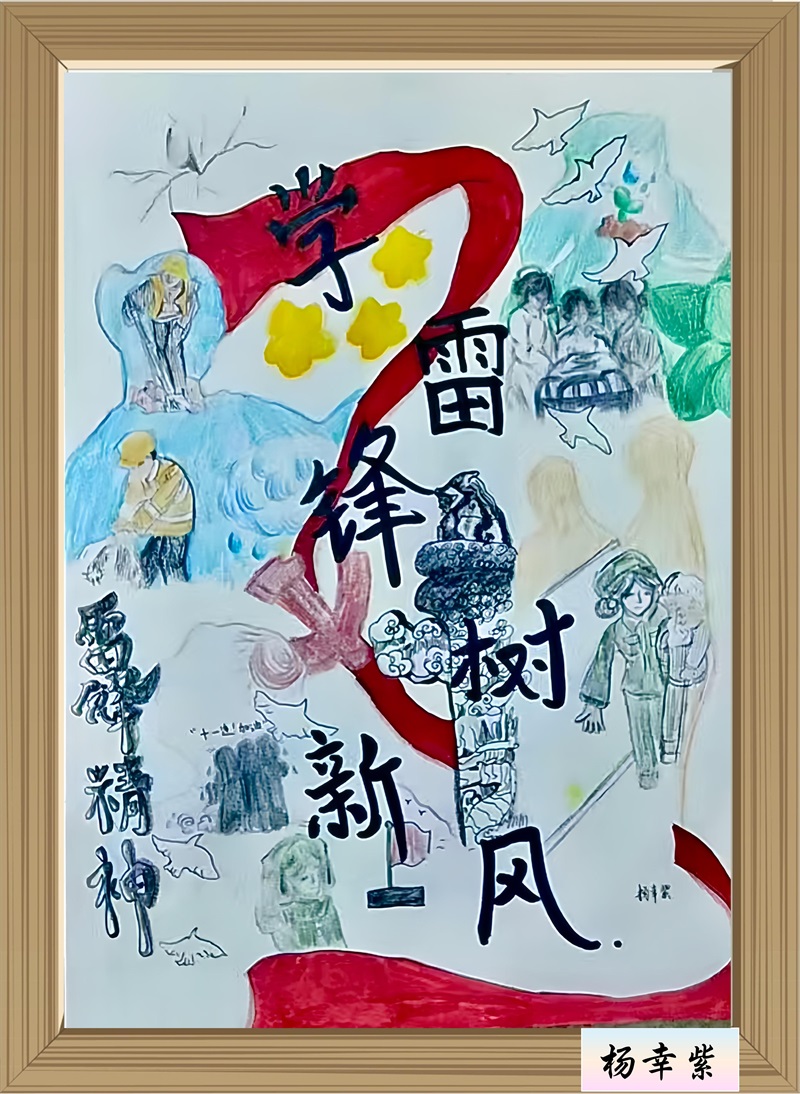 学
雷
锋
树
新
风.
雷锋精神
加油
杨幸紫
杨幸紫